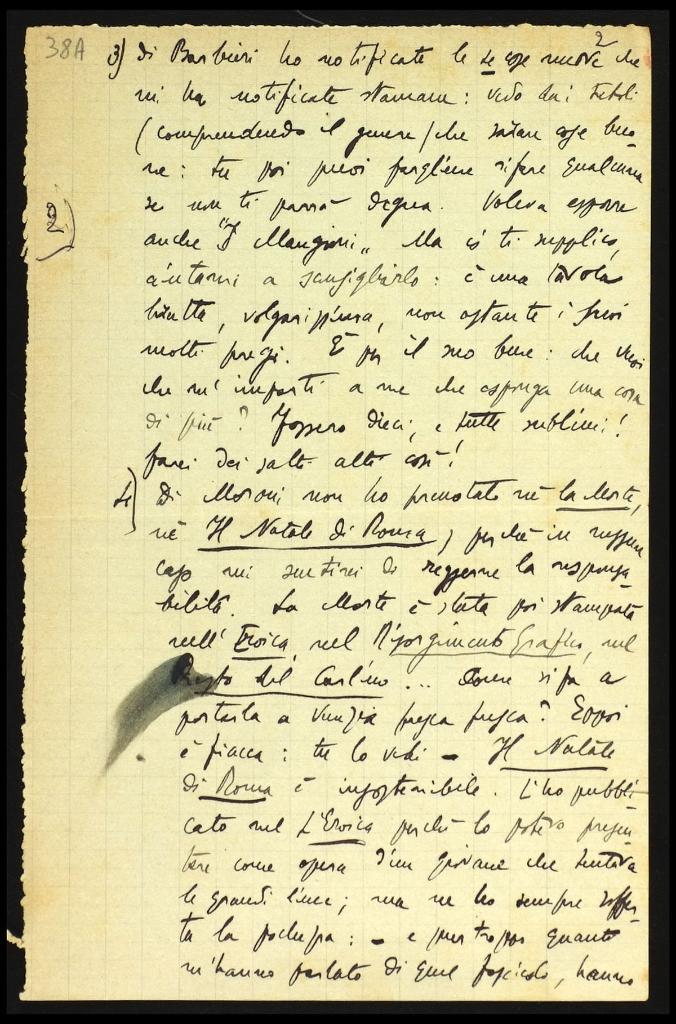 38A
2
3) Di Barbieri ho notificate le se cose nuove che
mi ha notificate stamane: vedo dai titoli
(comprendendo il genere) che saran cose buo-
ne: tu poi puoi fargliene rifare qualcuna
se non ti parrà degna. Voleva esporre
2)
anche "I Mangioni„ Ma io ti supplico,
aiutami a sconsigliarlo: è una tavola
brutta, volgarissima, non ostante i suoi
molti pregi. È per il suo bene: che vuoi
che m'importi a me che esponga una cosa
di più? Fossero dieci, e tutte sublimi!
farei dei salti alti così!
4) Di Moroni non ho prenotato nè la Morte,
nè Il Natale di Roma, perchè in nessun
caso mi sentirei di reggerne la responsa
bilità. La Morte è stata poi stampata
nell'Eroica, nel Risorgimento Grafico, nel
Resto del Carlino... Come si fa a
portarla a Venezia fresca fresca? Eppoi
è fiacca: tu lo vedi – Il Natale
di Roma è insostenibile. L'ho pubbli-
cato nel L'Eroica perchè lo potevo presen-
tare come opera d'un giovane che tentava
le grandi linee; ma ne ho sempre soffer-
ta la : – e purtroppo quanti
m'hanno parlato di quel fascicolo, hanno